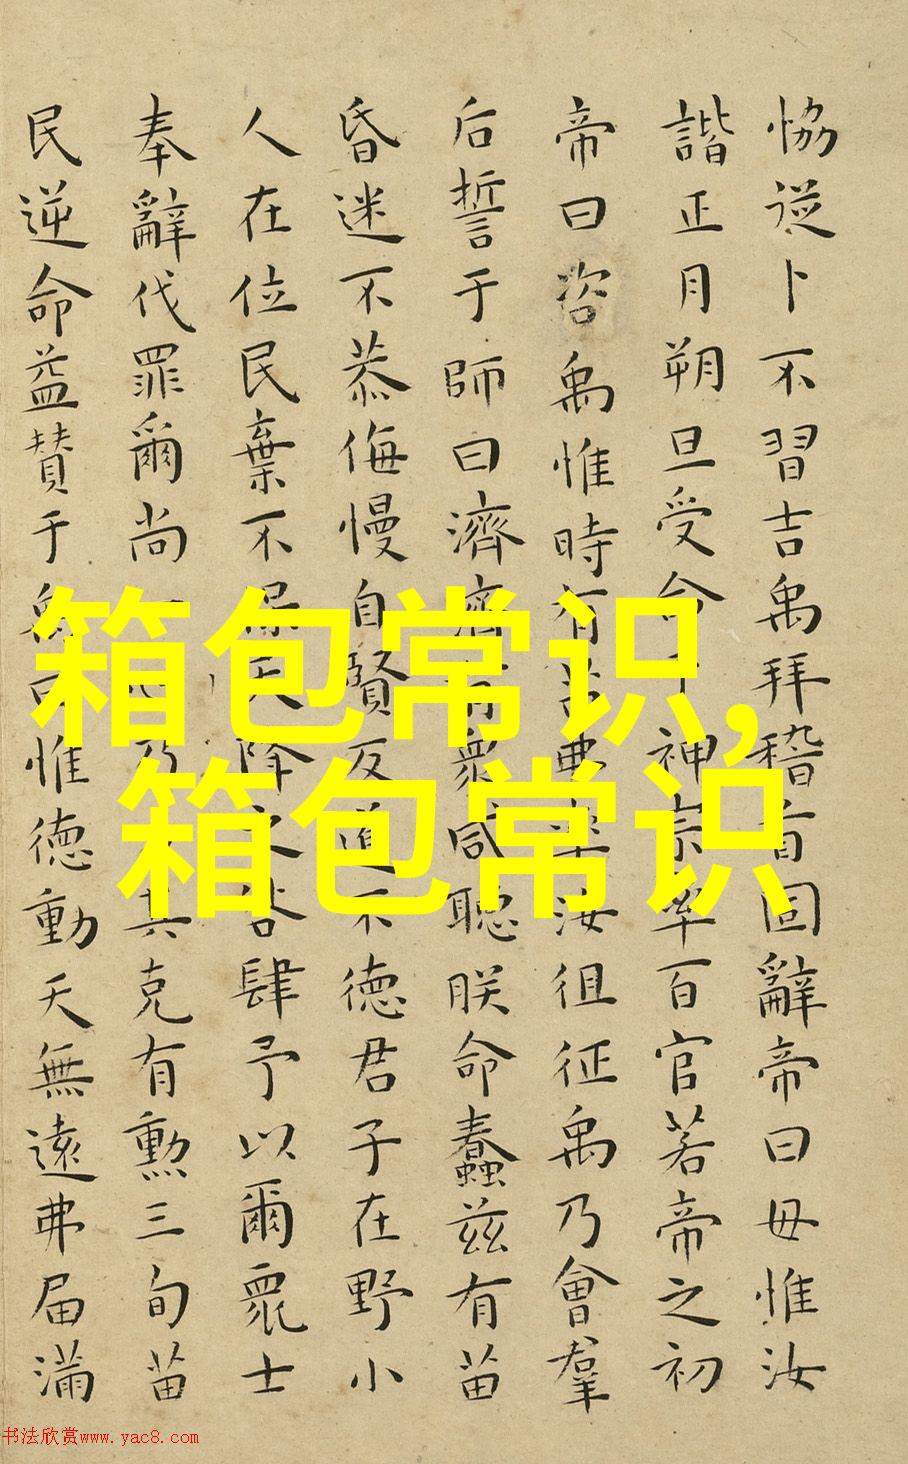 恊從卜不習吉禹拜稽首固辭帝曰毋惟汝
諧正月朔旦受命于神宗率百官若帝之初
帝曰咨禹惟時有苗弗率汝徂征禹乃會羣
后誓于師曰濟濟有衆咸聽朕命蠢茲有苗
昏迷不恭侮慢自賢反道不徳君子在野小
人在位民棄不保天降之咎肆予以爾衆士
奉辭伐罪爾尚一乃其克有勲三旬苗
民逆命益賛于禹曰惟徳動天無遠弗届滿
箱包常识,
箱包常识
书法欣赏www.yac8.com